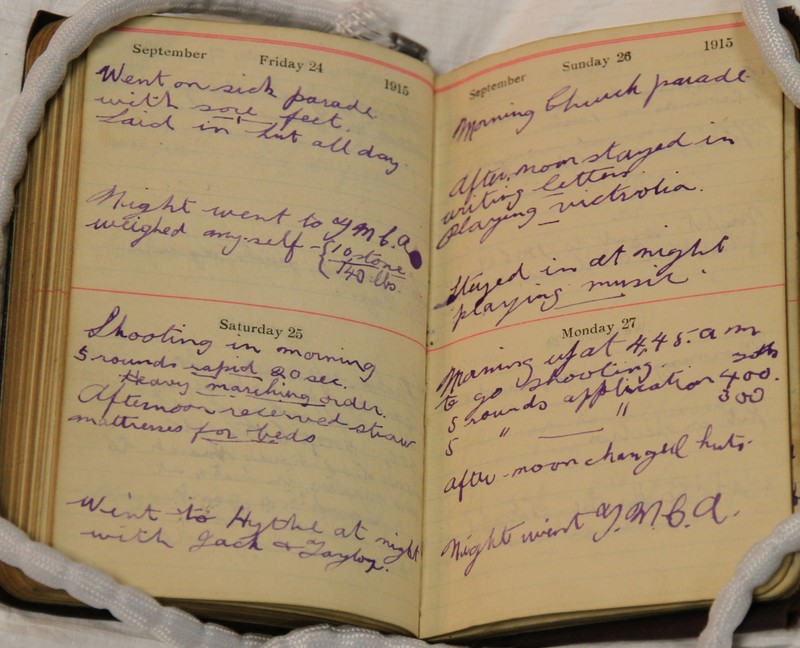 September Friday 24 1915
Went on sick parade
with sore feet.
Laid in hut all day.
Night went to Y M C A
weighed my-self - { 10 stone
140 lbs.
Saturday 25
Shooting in morning
5 rounds rapid 20 sec.
Heavy marching order.
Afternoon received straw
mattresses for beds
Went to Hythe at night
with Jack & Taylor.
September Sunday 26 1915
Morning Church parade
After-noon stayed in
writing letters
playing victrolia.
Stayed in at night
playing music.
Monday 27
Morning up at 4.45. a m
to go shooting.
5 rounds application 400.
5 " " 300
After-noon changed huts.
Night went Y.M.C.A.